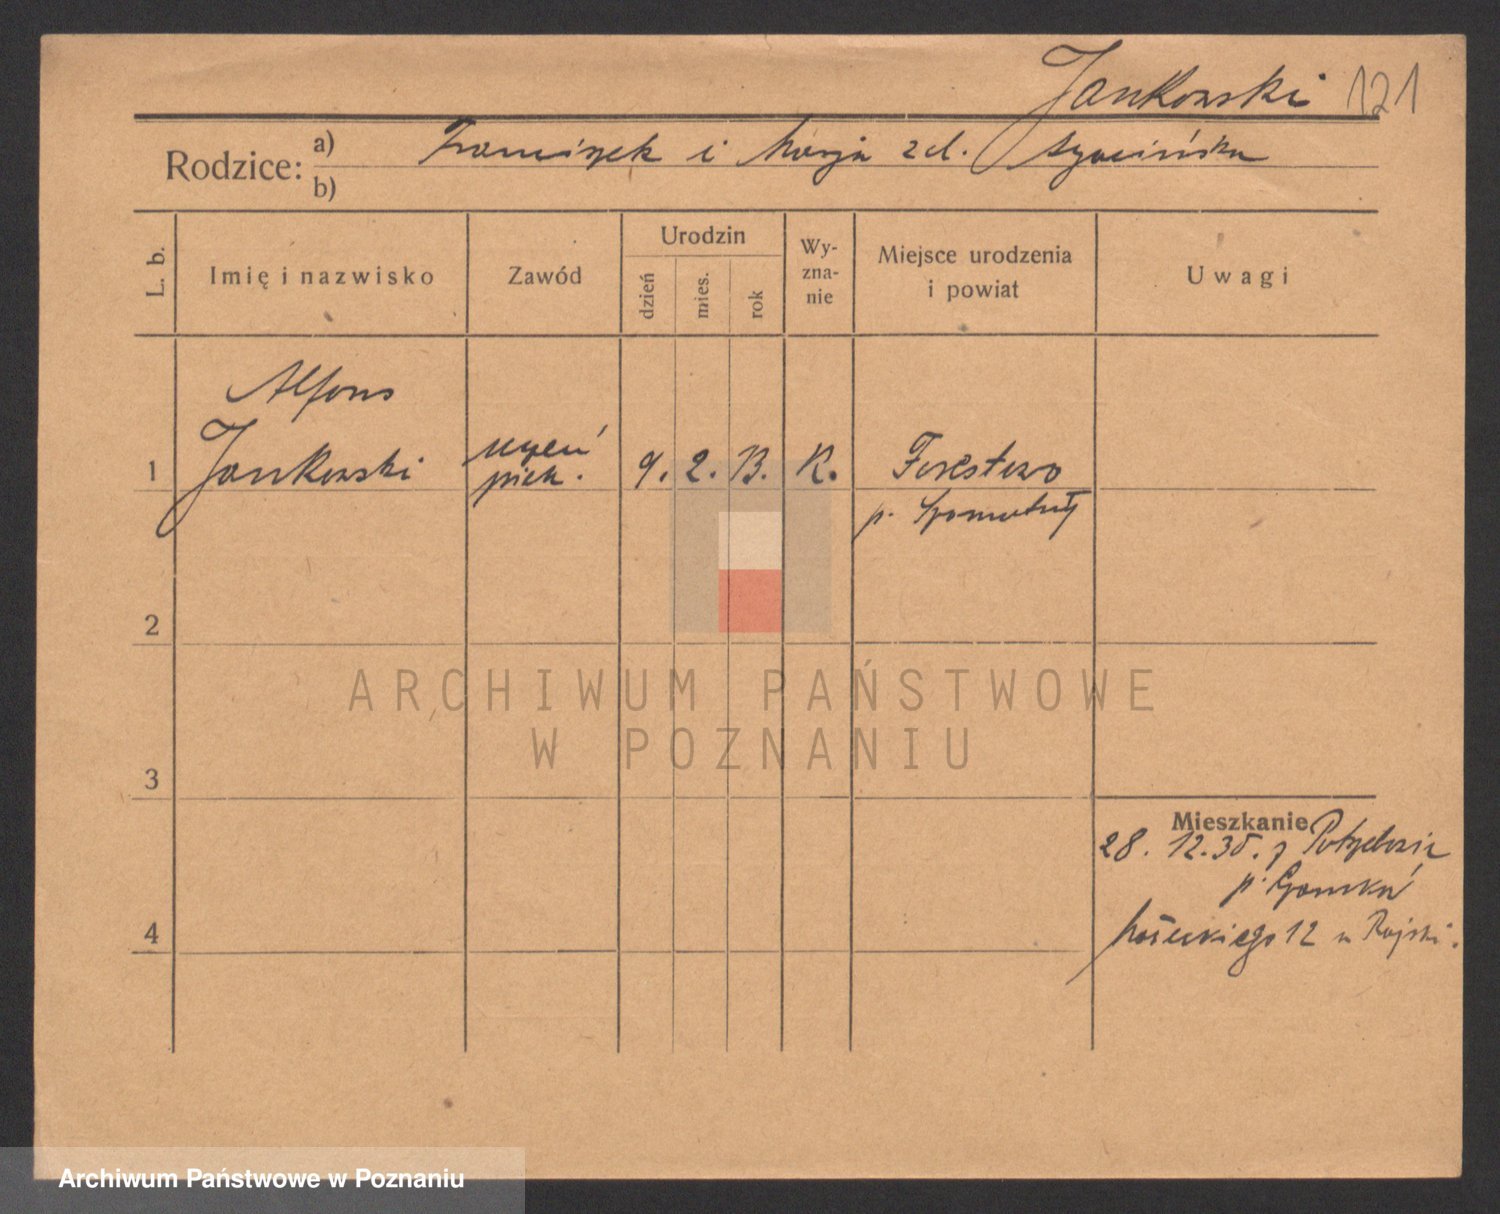 Jankowski 121
Rodzice: a) Franciszek i Marja z d.
b)
L. b.
Imię i nazwisko
Zawód
Urodzin
dzień
mies.
rok
Wy-
zna-
nie
Miejsce urodzenia
i powiat
Uwagi
Alfons
1 Jankowski uczeń piek. 9. 2. 13. K. Forestowo
p. Szamotuły
2
3
4
Mieszkanie
28. 12. 35. z
p.
12 u Rajski.
ARCHIWUM PAŃSTWOWE
W POZNANIU
Archiwum Państwowe w Poznaniu